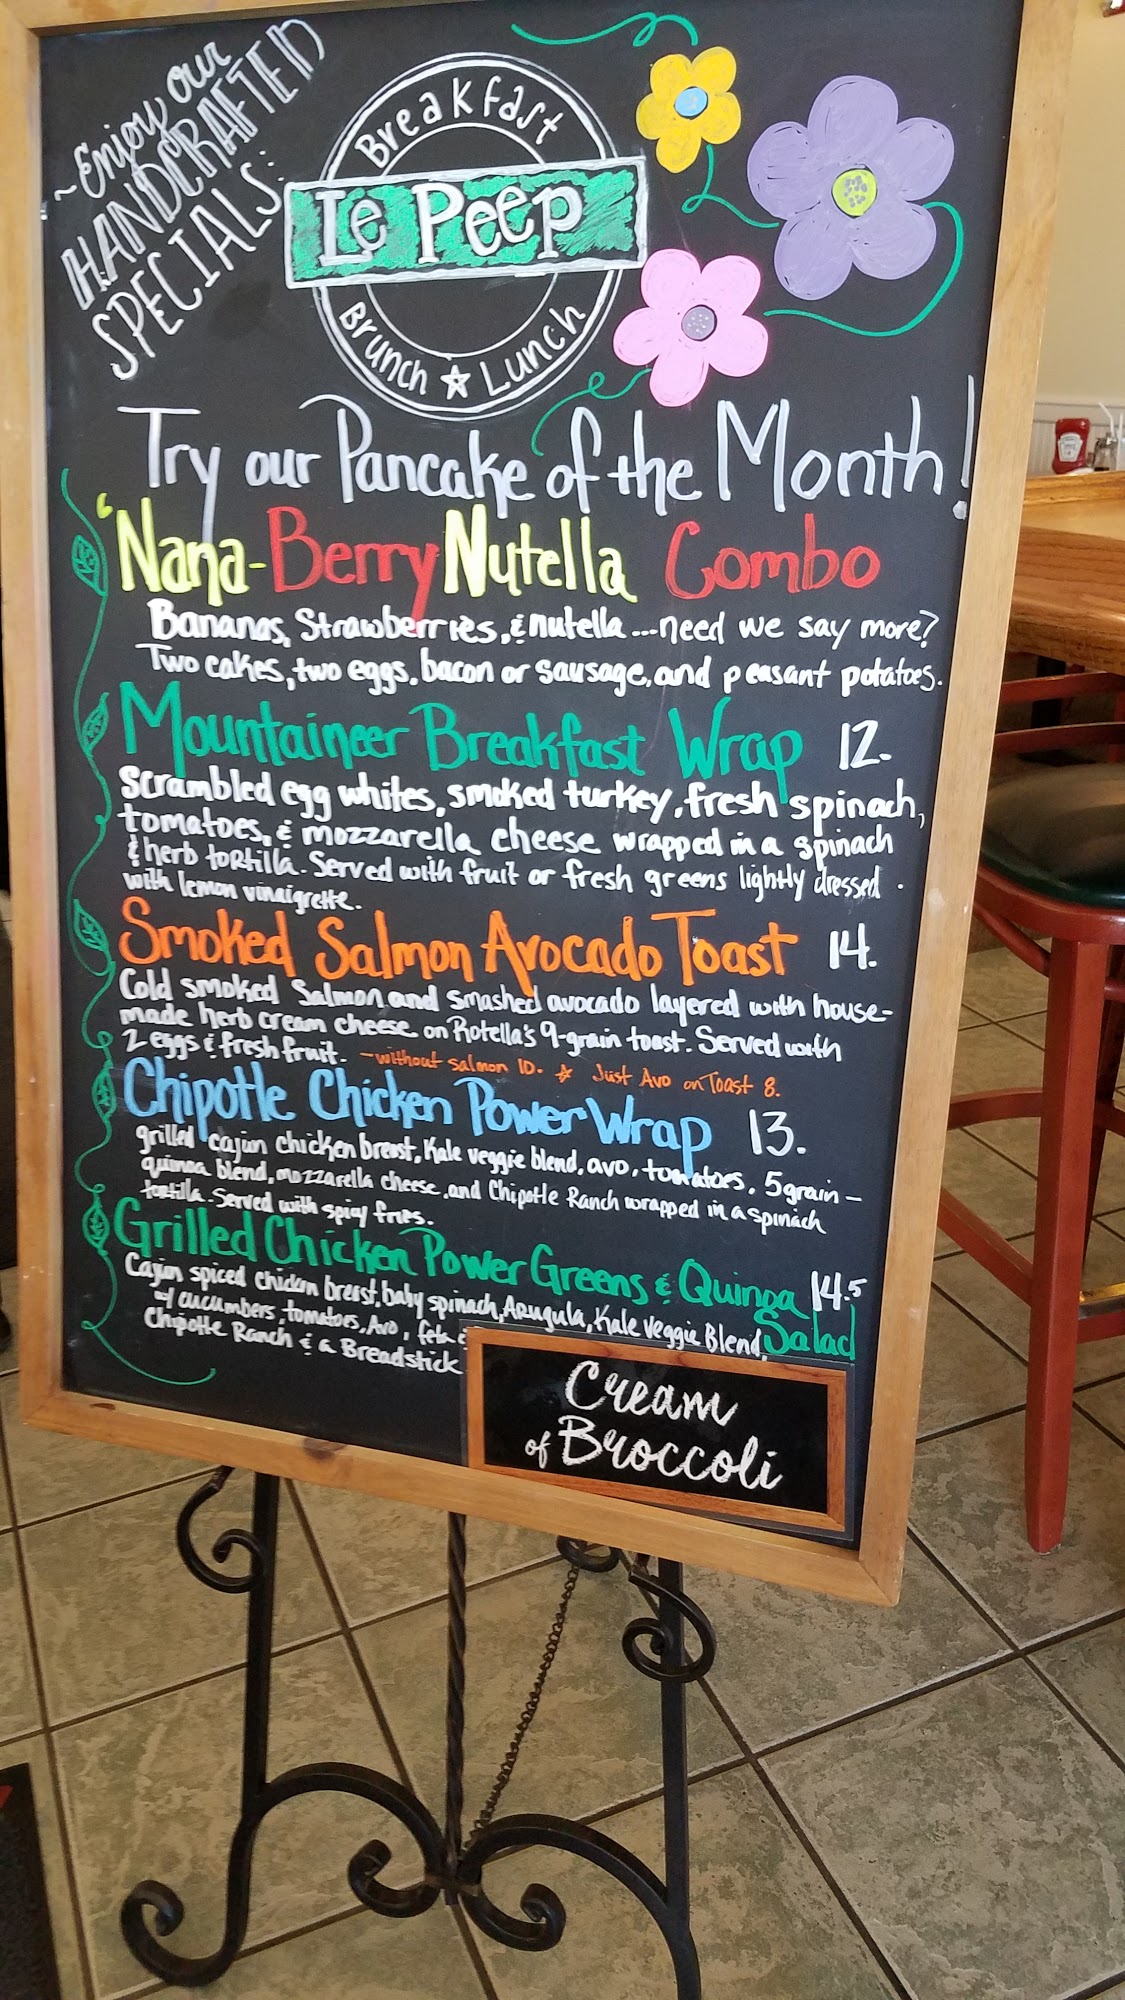 ~Enjoy our
HANDCRAFTED
SPECIALS:
Breakfast
Le Peep
Brunch ☆ Lunch
Try our Pancake of the Month!
'Nana-Berry Nutella Combo
Bananas, Strawberries, & nutella...need we say more?
Two cakes, two eggs, bacon or sausage, and peasant potatoes.
Mountaineer Breakfast Wrap 12.
Scrambled egg whites, smoked turkey, fresh spinach,
tomatoes, & mozzarella cheese wrapped in a spinach
& herb tortilla. Served with fruit or fresh greens lightly dressed
with lemon vinaigrette.
Smoked Salmon Avocado Toast 14.
Cold smoked Salmon and smashed avocado layered with house-
made herb cream cheese on Rotella's 9-grain toast. Served with
2 eggs & fresh fruit. -without salmon 10. ☆ Just Avo on Toast 8.
Chipotle Chicken Power Wrap 13.
grilled cajun chicken breast, Kale veggie blend, avo, tomatoes, 5 grain-
quinoa blend, mozzarella cheese, and Chipotle Ranch wrapped in a spinach
tortilla. Served with spicy fries.
Grilled Chicken Power Greens & Quinoa 14.5
Salad
Cajun spiced chicken breast, baby spinach, Arugula, Kale Veggie Blend,
w/ cucumbers, tomatoes, Avo, feta &
Chipotle Ranch & a Breadstick
Cream
of Broccoli